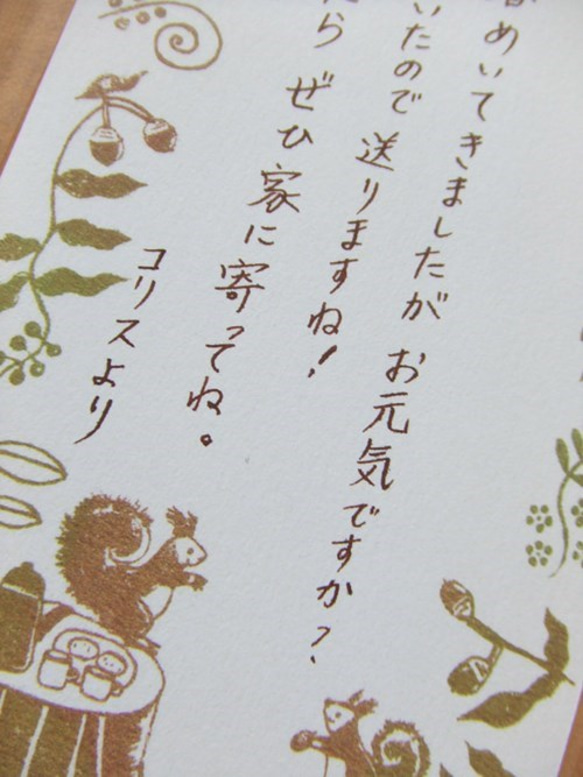 めいてきましたが お元気ですか?
いたので 送りますね!
たら ぜひ家に寄ってね。
コリスより